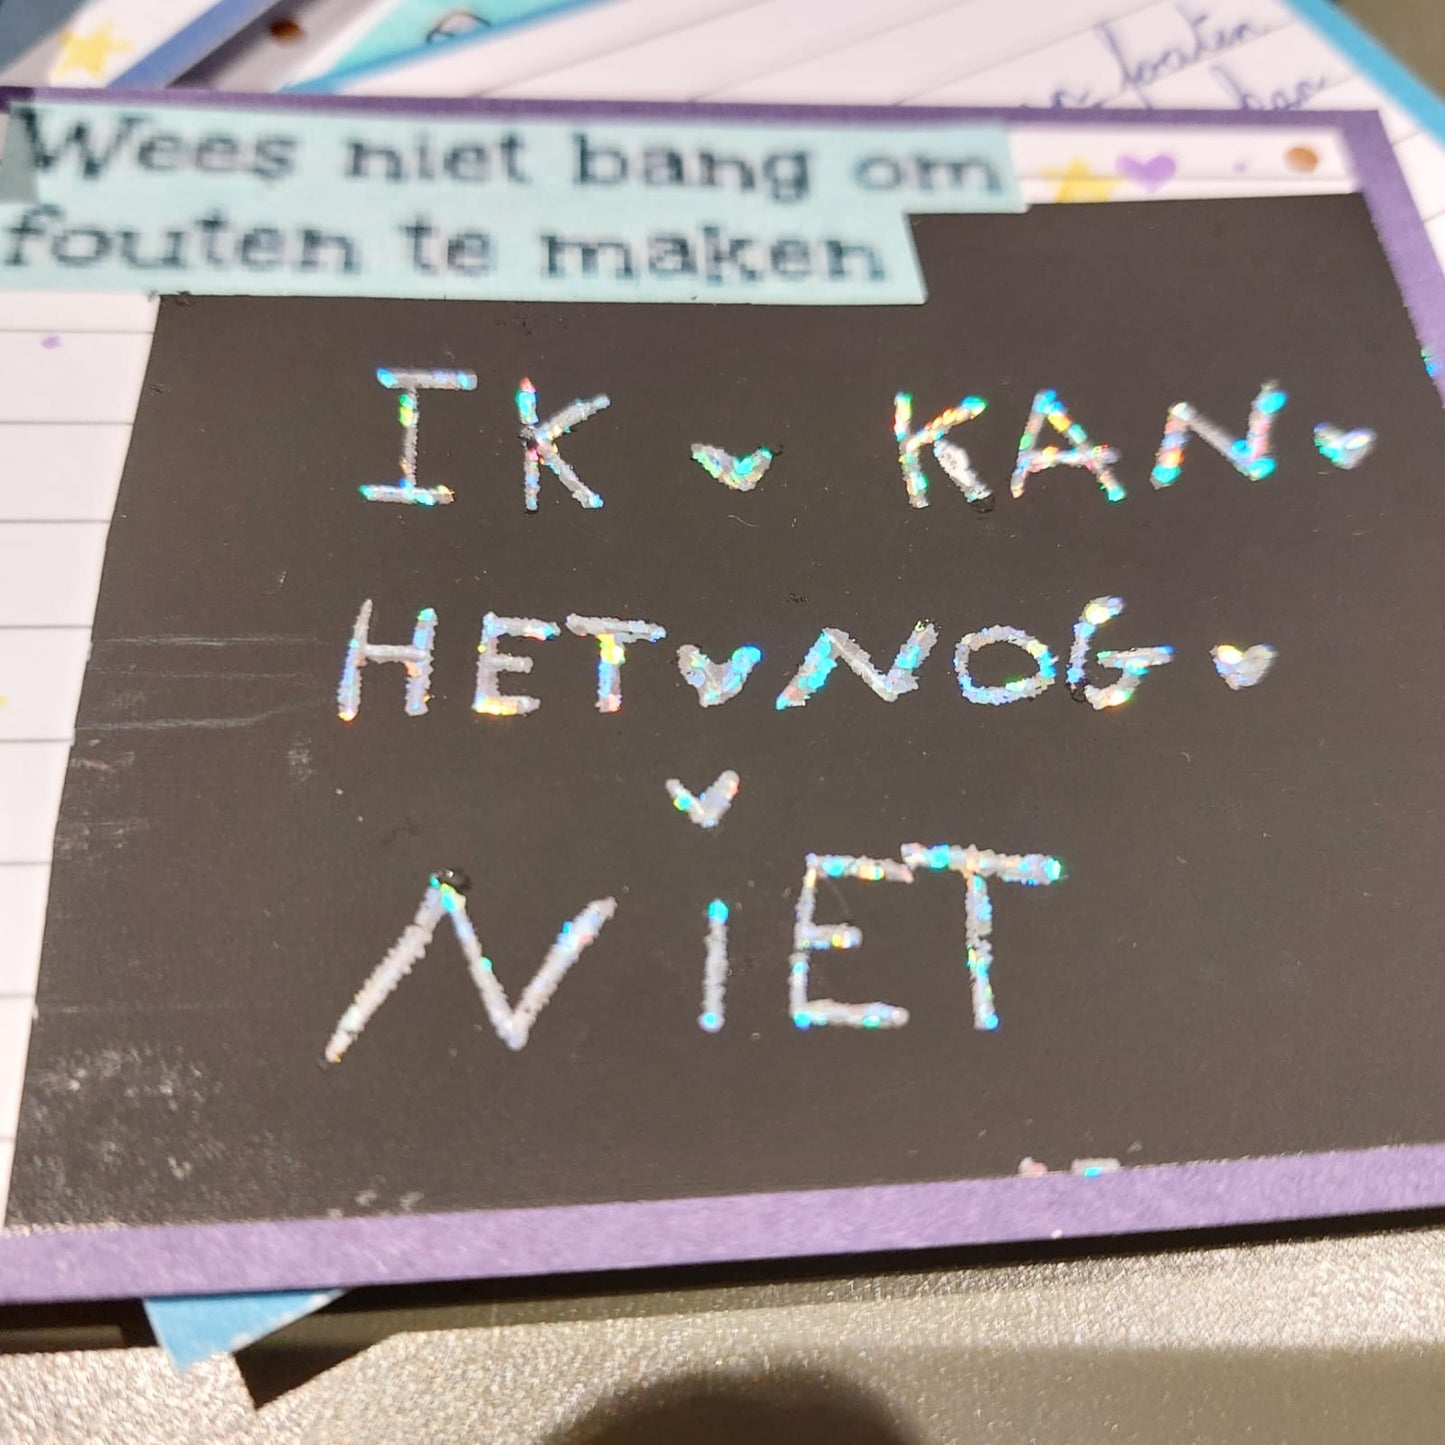 fouten
kan
Wees niet bang om
fouten te maken
IK KAN
HET NOG
NIET